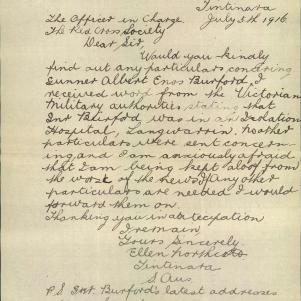 Tintinara
The Officer in Charge July 5th 1916
The Red Cross Society
Dear Sir,
Would you kindly
find out any particulars concering
Gunner Albert Enos Burford, I
received word from the Victorian
Military authorities stating that
Gnr Burford, was in an Isolation
Hospital, Langwarrin. No other
particulars were sent concern-
ing, and I am anxiously afraid
that I am being kept from
the worst of the news. If any other
particulars are needed I would
forward them on.
Thanking you in
I remain
Yours Sincerely
Ellen Northcott
Tintinara
S Aus
P.S Gnr. Burford's latest addresses